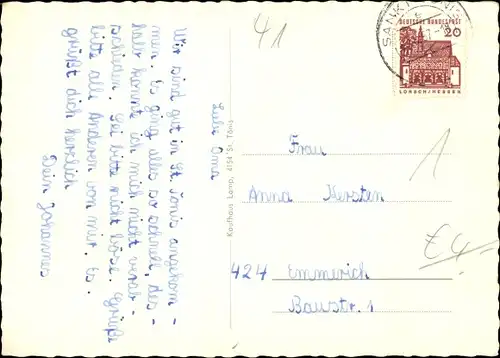 41
SANKT
DEUTSCHE BUNDESPOST
20
LORSCH/HESSEN
Liebe Oma,
Wir sind gut in St. Tönis angekom-
men. Es ging alles so schnell, des-
halb konnte ich mich nicht verab-
schieden. Sei bitte nicht böse. Grüße
bitte alle Anderen von mir. Es
grüßt dich herzlich
Dein Johannes
Kaufhaus Lamp, 4154 St. Tönis
Frau
Anna Kersten
424 Emmerich
Baustr. 1
1
€4,-